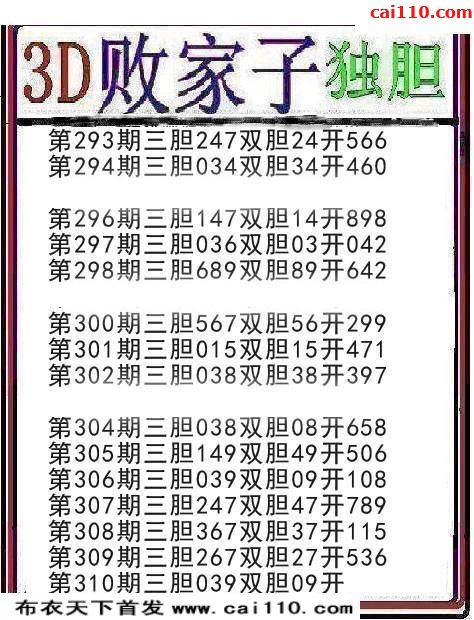 cai110.com
3D败家子独胆
第293期三胆247双胆24开566
第294期三胆034双胆34开460
第296期三胆147双胆14开898
第297期三胆036双胆03开042
第298期三胆689双胆89开642
第300期三胆567双胆56开299
第301期三胆015双胆15开471
第302期三胆038双胆38开397
第304期三胆038双胆08开658
第305期三胆149双胆49开506
第306期三胆039双胆09开108
第307期三胆247双胆47开789
第308期三胆367双胆37开115
第309期三胆267双胆27开536
第310期三胆039双胆09开
布衣天下首发 www.cai110.com